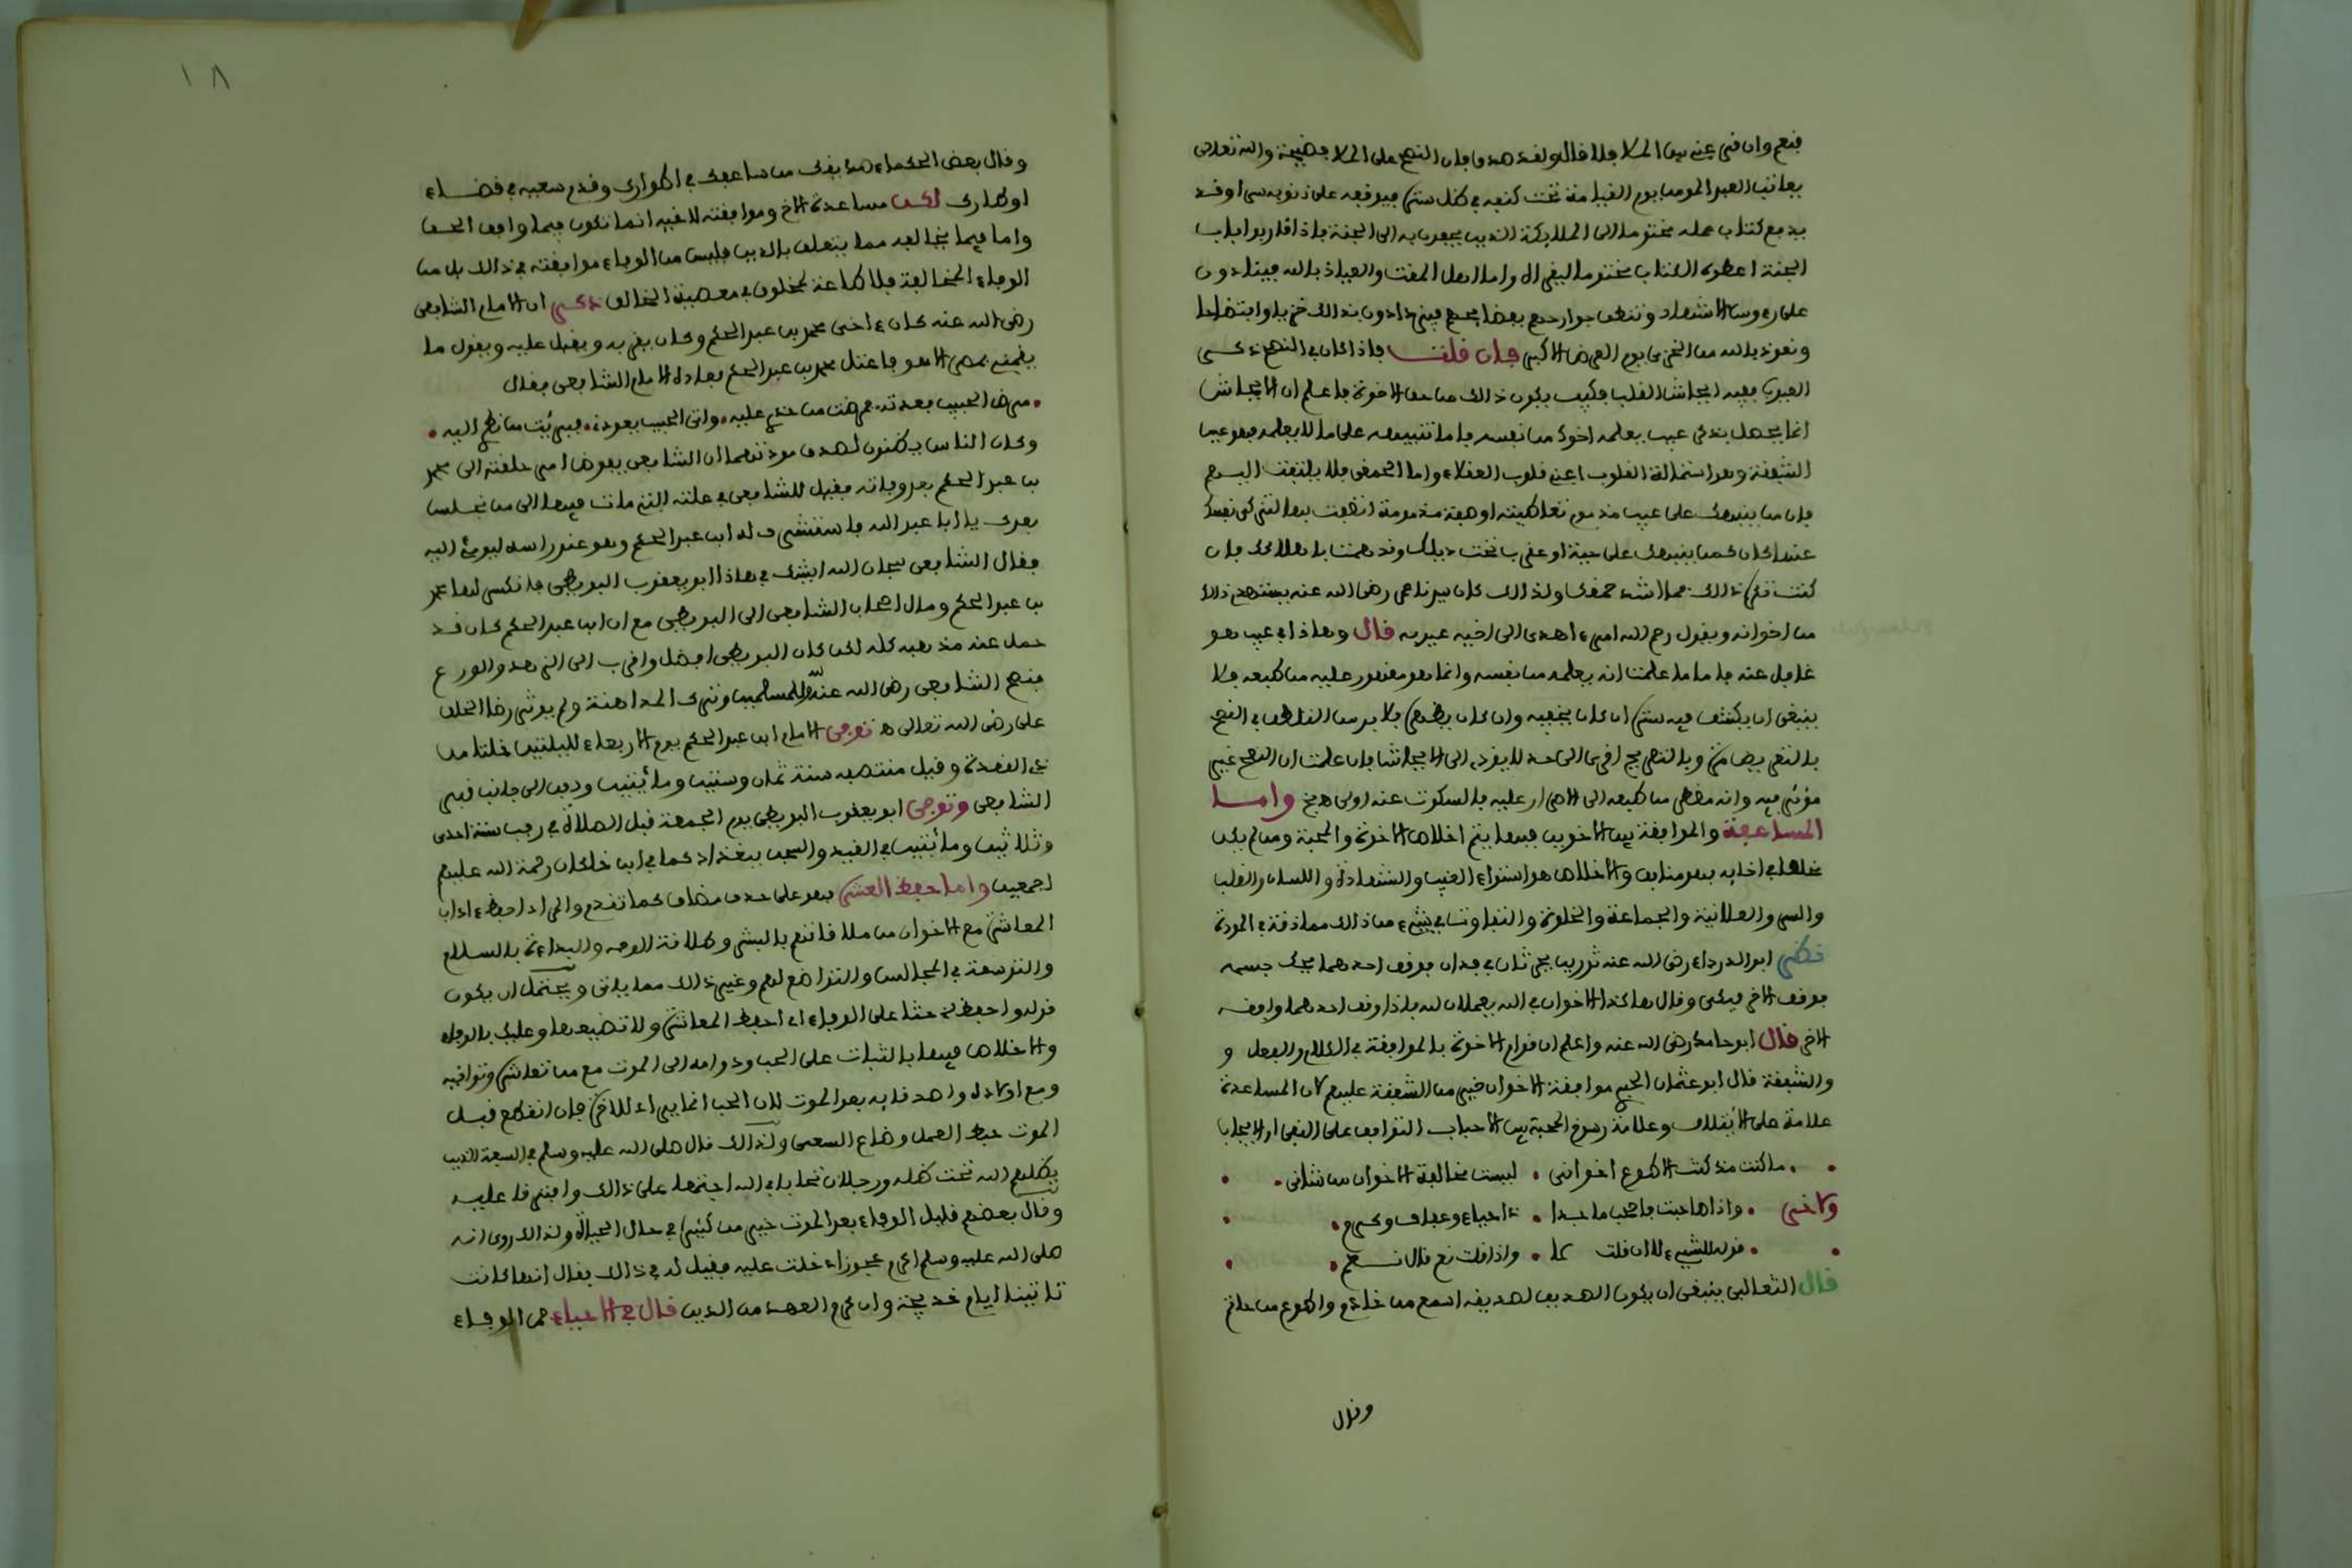 فنعم وان قرعني بين الملا فلا قالوا لقد صدق فان النصح على الملا فضيحة والله تعالى
يعاتب العبد المومن يوم القيامة تحت كنفه في ظل ستره فيوقفه على ذنوبه سرا وقد
يدفع كتاب عمله مختوما الى الملايكة الذين يحفون به الى الجنة فاذا قاربوا باب
الجنة اعطوه الكتاب مختوما ليقراه واما اهل المقت والعياذ بالله فينادون
على رءوس الاشهاد وتنطق جوارحهم بفضايحهم فيزدادون بذلك خزيا وافتضاحا
ونعوذ بالله من الخزي يوم العرض الاكبر فان قلت فاذا كان في النصح ذكر
العيوب ففيه ايحاش القلب فكيف يكون ذلك من حق الاخوة فاعلم ان الايحاش
انما يحصل بذكر عيب يعلمه اخوك من نفسه فاما تنبيهه على ما لا يعلمه فهو عين
الشفقة وهو استمالة القلوب اعني قلوب العقلاء واما الحمقى فلا يلتفت اليهم
فان من ينبهك على عيب مذموم تعاطيته او صفة مذمومة اتصفت بها لتزكي نفسك
عنها كان كمن ينبهك على حية او عقرب تحت ذيلك وقد همت باهلاكك فان
كنت تكره ذلك فما اشد حمقك ولذلك كان سيدنا عمر رضي الله عنه يستهدي ذلك
من اخوانه ويقول رحم الله امرء اهدى الى اخيه عيوبه قال وهاذا في عيب هو
غافل عنه فاما ما علمت انه يعلمه من نفسه وانما هو مقهور عليه من طبعه فلا
ينبغي ان يكشف فيه ستره ان كان يخفيه وان كان يظهره فلا بد من التلطف في النصح
بالتعريض مرة وبالتصريح اخرى الى حد لا يودي الى الايحاش فان علمت ان النصح غير
موثر فيه وانه مضطر من طبعه الى الاصرار عليه فالسكوت عنه اولى واما
المساعفة والموافقة بين الاخوين فبها يتم اخلاص الاخوة والمحبة ومن لم يكن
مخلصا في اخايه فهو منافق والاخلاص هو استواء الغيب والشهادة واللسان والقلب
والسر والعلانية والجماعة والخلوة والتفاوت في شيء من ذلك مماذقة في المودة
نظر ابو الدرداء رضي الله عنه ثورين يحرثان في فدان فوقف احدهما يحك جسمه
فوقف الاخر فبكى وقال هاكذا الاخوان في الله يعملان لله فاذا وقف احدهما وافقه
الاخر قال ابو حامد رضي الله عنه واعلم ان قوام الاخوة بالموافقة في الكلام والفعل و
والشفقة قال ابو عثمان الحيري موافقة الاخوان خير من الشفقة عليهم لان المساعدة
علامة على الايتلاف وعلامة رسوخ المحبة بين الاحباب التوافق على النفي او الايجاب
ما كنت مذ كنت الا طوع اخواني • ليست مخالفة الاخوان من شاني •
ولاخر • واذا صاحبت فاصحب ماجدا • ذا حياء وعفاف وكرم •
• قوله للشيء لا ان قلت لا • واذا قلت نعم قال نعم •
قال الثعالبي ينبغي ان يكون الصديق لصديقه اسمع من خادم واطوع من خاتم
وقال
١٨
وقال بعض الحكماء صديقك من ساعدك في اطوارك وقدم سعيه في قضاء
اوطارك لكن مساعدة الاخ وموافقته لاخيه انما تكون فيما وافق الحق
واما فيما يخالفه مما يتعلق بالدين فليس من الوفاء موافقته في ذالك بل من
الوفاء المخالفة فلا طاعة لمخلوق في معصية الخالق ذكر ان الامام الشافعي
رضي الله عنه كان ءاخى محمد بن عبد الحكم وكان يقربه ويقبل عليه ويقول ما
يقيمني بمصر الا هو فاعتل محمد بن عبد الحكم فعاده الامام الشافعي فقال
• مرض الحبيب فعدته • فمرضت من حذري عليه • واتى الحبيب يعودني • فبرئت من نظري اليه •
وكان الناس يظنون لصدق مودتهما ان الشافعي يفوض امر حلقته الى محمد
بن عبد الحكم بعد وفاته فقيل للشافعي في علته التي مات فيها الى من نجلس
بعدك يا ابا عبد الله فاستشرف له ابن عبد الحكم وهو عند راسه ليومئ اليه
فقال الشافعي سبحان الله ايشك في هاذا ابو يعقوب البويطي فانكسر لها محمد
بن عبد الحكم ومال اصحاب الشافعي الى البويطي مع ان ابن عبد الحكم كان قد
حمل عنه مذهبه كله لكن كان البويطي افضل واقرب الى الزهد والورع
فنصح الشافعي رضي الله عنه لله وللمسلمين وترك المداهنة ولم يوثر رضا الخلق
على رضى الله تعالى توفي الامام ابن عبد الحكم يوم الاربعاء لليلتين خلتا من
ذي القعدة وقيل منتصفه سنة ثمان وستين ومائتين ودفن الى جانب قبر
الشافعي وتوفي ابو يعقوب البويطي يوم الجمعة قبل الصلاة في رجب سنة احدى
وثلاثين ومائتين في القيد والسجن ببغداد كما في ابن خلكان رحمة الله عليهم
اجمعين واما حفظ العشرة فهو على حذف مضاف كما تقدم والمراد احفظ ءاداب
المعاشرة مع الاخوان من ملاقاتهم بالبشر وطلاقة الوجه والبداءة بالسلام
والتوسعة في المجالس والتواضع لهم وغير ذالك مما ياتي ويحتمل ان يكون
قوله واحفظ حثا على الوفاء اي احفظ المعاشرة ولا تضيعها وعليك بالوفاء
والاخلاص فيها بالثبات على الحب ودوامه الى الموت مع من تعاشره وتواخيه
ومع اولاده واصدقايه بعد الموت لان الحب انما يراد للاخرة فان انقطع قبل
الموت حبط العمل وضاع السعي ولذالك قال صلى الله عليه وسلم في السبعة الذين
يظلهم الله تحت ظله ورجلان تحابا في الله اجتمعا على ذالك وافترقا عليه
وقال بعضهم قليل الوفاء بعد الموت خير من كثيره في حال الحياة ولذالك روي انه
صلى الله عليه وسلم اكرم عجوزا دخلت عليه فقيل له في ذالك فقال انها كانت
تاتينا ايام خديجة وان كرم العهد من الدين قال في الاحياء فمن الوفاء